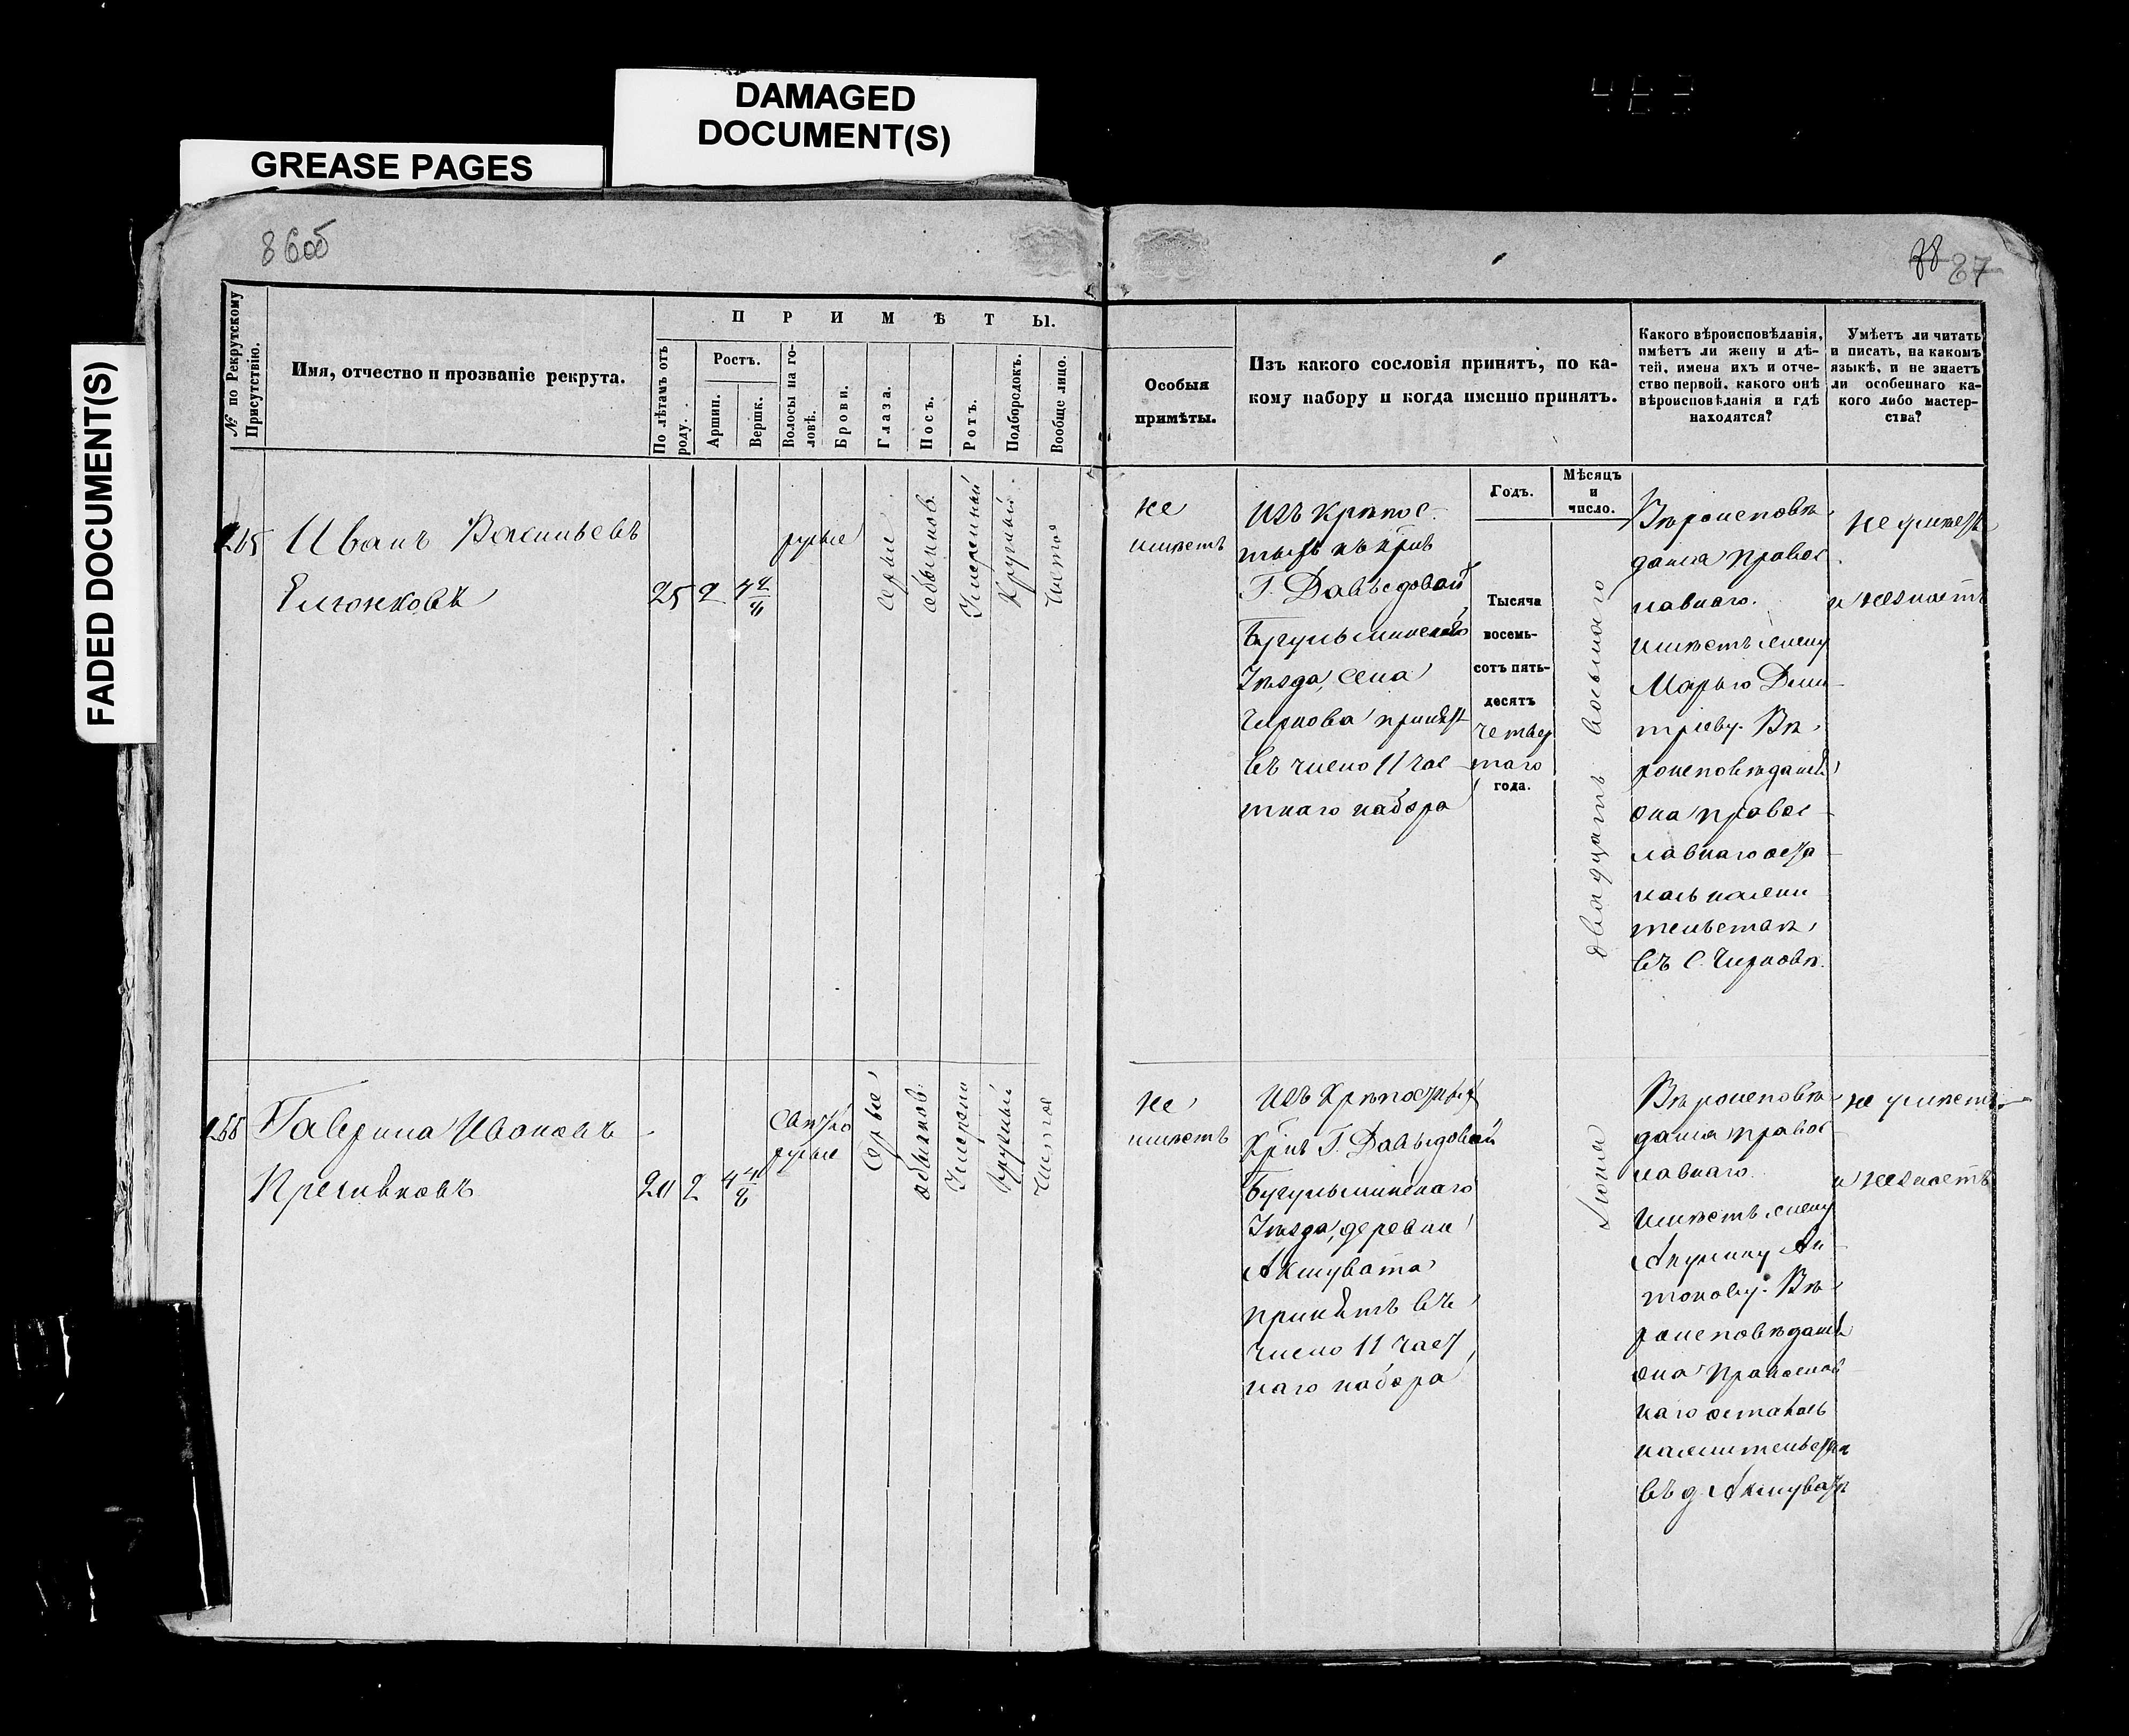 DAMAGED
DOCUMENT(S)
GREASE PAGES
FADED DOCUMENT(S)
463
86об
87
№ по Рекрутскому
Присутствію.
Имя, отчество и прозваніе рекрута.
ПРИМѢТЫ.
По лѣтамъ отъ
роду.
Ростъ.
Аршин.
Вершк.
Волосы на го-
ловѣ.
Брови.
Глаза.
Носъ.
Ротъ.
Подбородокъ.
Вообще лицо.
Особыя
примѣты.
Изъ какого сословія принятъ, по ка-
кому набору и когда именно принятъ.
Годъ.
Мѣсяцъ
и
число.
Какого вѣроисповѣданія,
имѣетъ ли жену и дѣ-
тей, имена ихъ и отче-
ство первой, какого онѣ
вѣроисповѣданія и гдѣ
находятся?
Умѣетъ ли читать
и писать, на какомъ
языкѣ, и не знаетъ
ли особеннаго ка-
кого либо мастер-
ства?
265
Иванъ Васильевъ
25
2
русые
Серые
обыкнов.
Умеренный
Круглый
Чистое
не
имѣетъ
Изъ крѣпос-
Г. Давыдовой
Бугульминскаго
Уѣзда, села
Чиркова принятъ
въ число 11 час
тнаго набора
Тысяча
восемь-
сотъ пять-
десятъ
четвер
таго
года.
двадцать восьмаго
Вѣроисповѣ
данія правос
лавнаго.
имѣетъ жену
Марью Дми
тріеву. Вѣ
роисповѣданія
она правос
лавнаго оста
лась на жи
тельствѣ
въ С. Чирковѣ.
не умѣетъ
и не знаетъ
266
Гаврила Ивановъ
20
2
Светло
русые
Серые
обыкнов.
Умерены
Круглый
Чистое
не
имѣетъ
Изъ Крѣпостныхъ
Крѣс Г. Давыдовой
Бугульминскаго
Уѣзда, деревни
Акшувата
принятъ въ
число 11 част
наго набора
Іюня
Вѣроисповѣ
данія правос
лавнаго.
Имѣетъ жену
Акулину Ан
тонову. Вѣ
роисповѣданія
она Православ
наго осталась
на жительствѣ
въ д. Акшуватѣ
не умѣетъ
и не знаетъ